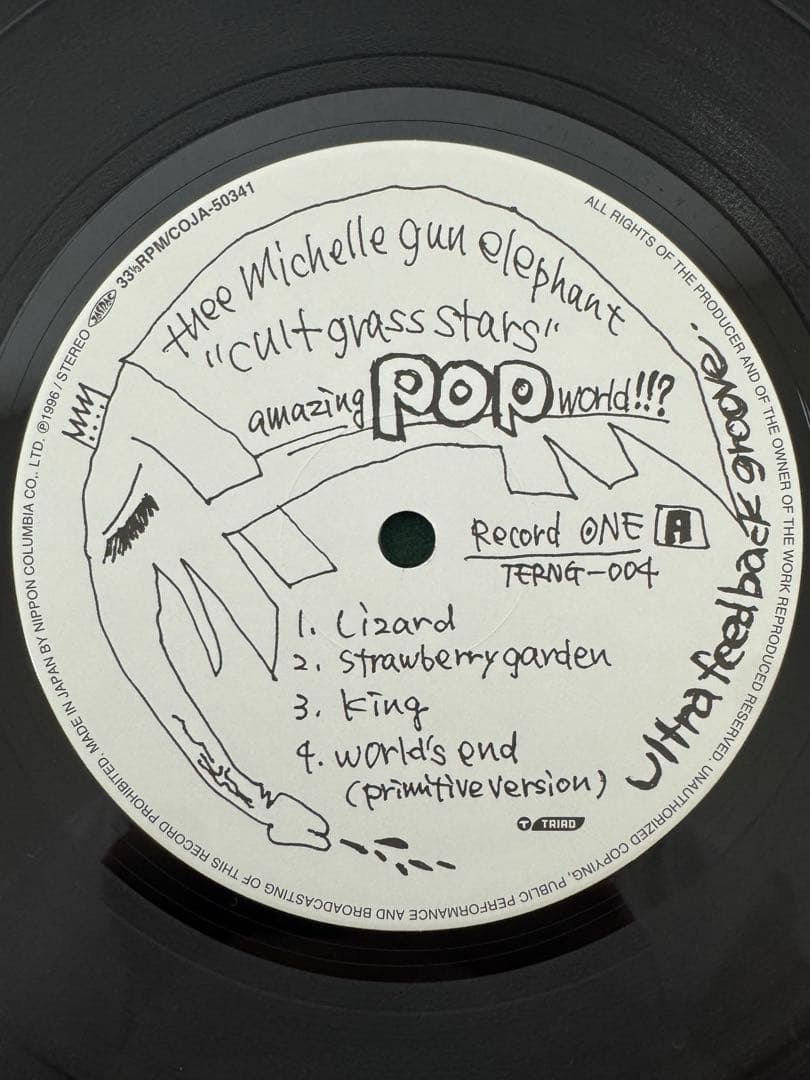 thee Michelle gun elephant
"cult grass stars"
amazing POP world!!?
Record ONE A
TERNG-004
1. Lizard
2. strawberry garden
3. king
4. world's end
(primitive version)
ultra feedback groove.
T TRIAD
MADE IN JAPAN BY NIPPON COLUMBIA CO., LTD. ℗1996 / STEREO 33⅓RPM/COJA-50341
ALL RIGHTS OF THE PRODUCER AND OF THE OWNER OF THE WORK REPRODUCED RESERVED. UNAUTHORIZED COPYING, PUBLIC PERFORMANCE AND BROADCASTING OF THIS RECORD PROHIBITED.